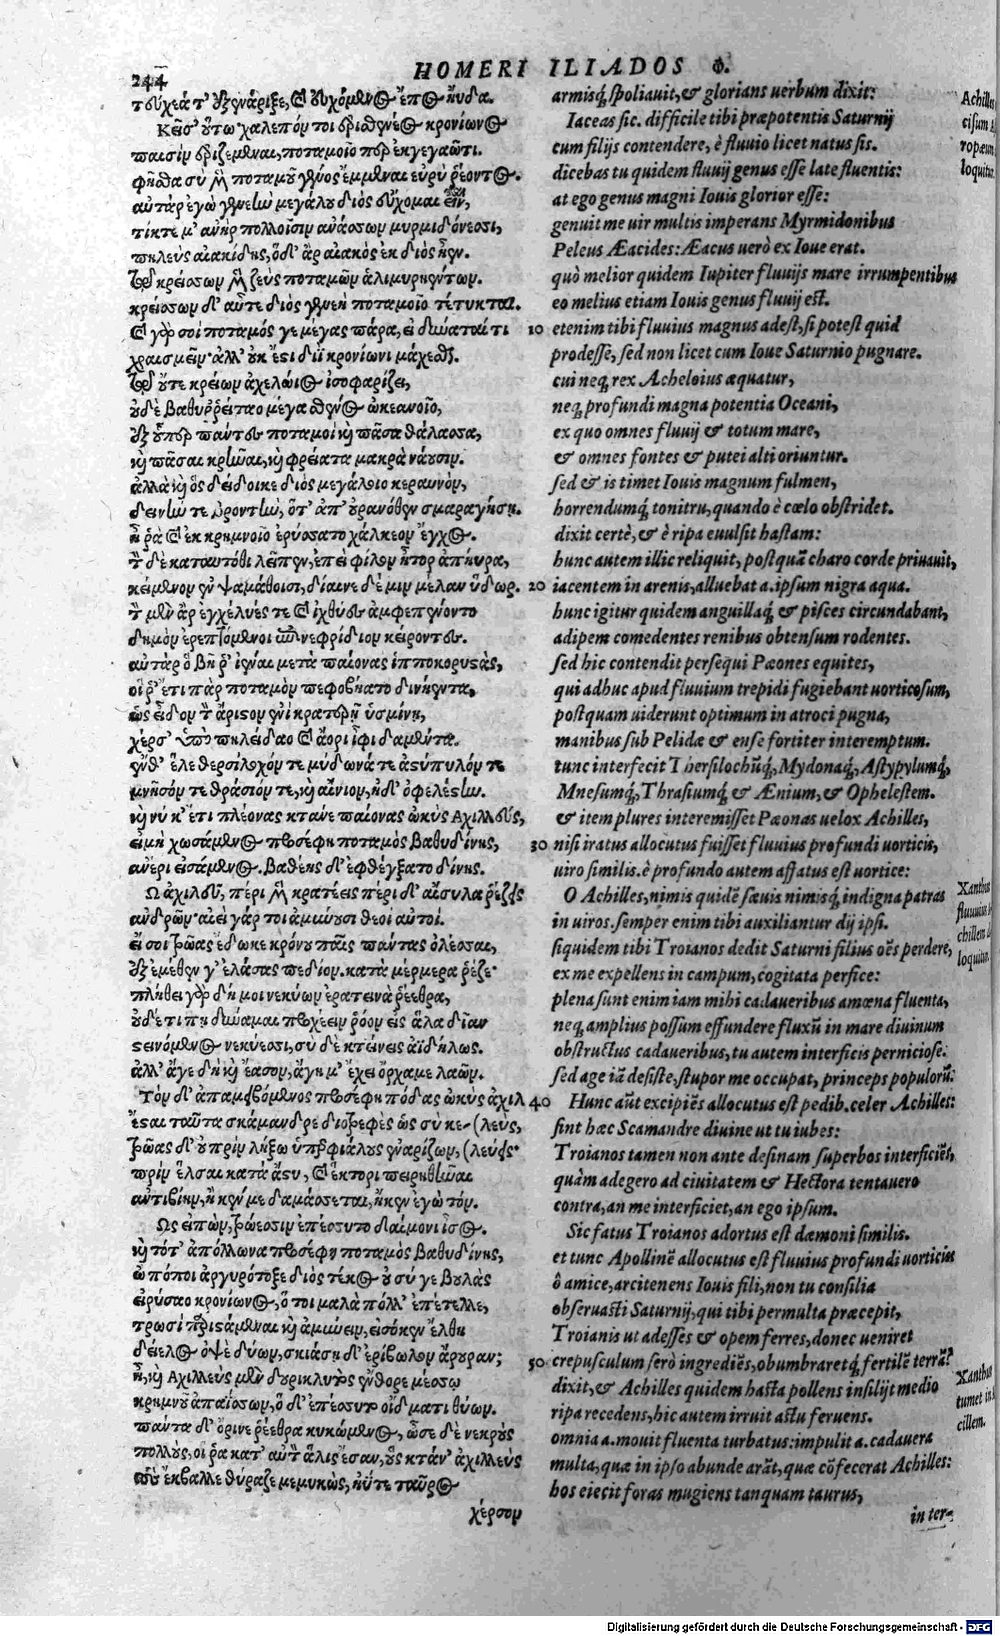 244
HOMERI ILIADOS Φ.
τεύχεά τ' ἐξενάριξε, καὶ εὐχόμενος ἔπος ηὔδα.
Κεῖσ' οὕτω χαλεπόν τοι ἐρισθενέος κρονίωνος
παισὶν ἐριζέμεναι, ποταμοῖο περ ἐκγεγαῶτι.
φῆσθα σὺ μὲν ποταμοῦ γένος ἔμμεναι εὐρὺ ῥέοντος.
αὐτὰρ ἐγὼ γενεὴν μεγάλου διὸς εὔχομαι εἶναι,
τίκτε μ' ἀνὴρ πολλοῖσιν ἀνάσσων μυρμιδόνεσσι,
πηλεὺς αἰακίδης, ὁ δ' ἄρ αἰακὸς ἐκ διὸς ἦεν.
τῷ κρείσσων μὲν ζεὺς ποταμῶν ἁλιμυρηέντων.
κρείσσων δ' αὖτε διὸς γενεὴ ποταμοῖο τέτυκται.
καὶ γὰρ σοὶ ποταμός γε μέγας πάρα, εἰ δύναταί τι
χραισμεῖν· ἀλλ' οὐκ ἔστι διῒ κρονίωνι μάχεσθαι.
τῷ οὔτε κρείων ἀχελώϊος ἰσοφαρίζει,
οὐδὲ βαθυῤῥείταο μέγα σθένος ὠκεανοῖο,
ἐξ οὗπερ πάντες ποταμοὶ καὶ πᾶσα θάλασσα,
καὶ πᾶσαι κρῆναι, καὶ φρείατα μακρὰ νάουσιν.
ἀλλὰ καὶ ὃς δείδοικε διὸς μεγάλοιο κεραυνὸν,
δεινήν τε βροντὴν, ὅτ' ἀπ' οὐρανόθεν σμαραγήσῃ.
ἦ ῥὰ καὶ ἐκ κρημνοῖο ἐρύσσατο χάλκεον ἔγχος.
τὸν δὲ καταυτόθι λεῖπεν, ἐπεὶ φίλον ἦτορ ἀπηύρα,
κείμενον ἐν ψαμάθοισι, δίαινε δέ μιν μέλαν ὕδωρ.
τὸν μὲν ἄρ ἐγχέλυές τε καὶ ἰχθύες ἀμφεπένοντο
δημὸν ἐρεπτόμενοι ἐπινεφρίδιον κείροντες.
αὐτὰρ ὁ βῆ ῥ' ἰέναι μετὰ παίονας ἱπποκορυστὰς,
οἵ ῥ' ἔτι πὰρ ποταμὸν πεφοβήατο δινήεντα,
ὡς εἶδον τὸν ἄριστον ἐνὶ κρατερῇ ὑσμίνῃ,
χέρσ' ὑπὸ πηλείδαο καὶ ἄορι ἶφι δαμέντα.
ἔνθ' ἕλε θερσίλοχόν τε μύδωνά τε ἀστύπυλόν τε
μνῆσόν τε θράσιόν τε, καὶ αἴνιον, ἠδ' ὀφελέστην.
καὶ νύ κ' ἔτι πλέονας κτάνε παίονας ὠκὺς Αχιλλεύς,
εἰ μὴ χωσάμενος προσέφη ποταμὸς βαθυδίνης,
ἀνέρι εἰσάμενος. βαθέης δ' ἐφθέγξατο δίνης.
Ω ἀχιλεῦ, πέρι μὲν κρατέεις πέρι δ' αἴσυλα ῥέζεις
ἀνδρῶν· αἰεὶ γάρ τοι ἀμύνουσι θεοὶ αὐτοί.
εἴ σοι τρῶας ἔδωκε κρόνου παῖς πάντας ὀλέσσαι,
ἐξ ἐμέθεν γ' ἐλάσας πεδίον. κατὰ μέρμερα ῥέζε·
πλήθει γὰρ δή μοι νεκύων ἐρατεινὰ ῥέεθρα,
οὐδέ τι πῃ δύναμαι προχέειν ῥόον εἰς ἅλα δῖαν
στεινόμενος νεκύεσσι, σὺ δὲ κτείνεις ἀϊδήλως.
ἀλλ' ἄγε δὴ καὶ ἔασον, ἄγη μ' ἔχει ὄρχαμε λαῶν.
Τὸν δ' ἀπαμειβόμενος προσέφη πόδας ὠκὺς ἀχιλ
ἔσται ταῦτα σκάμανδρε διοτρεφὲς ὡς σὺ κε- (λεύς,
τρῶας δ' οὐ πρὶν λήξω ὑπερφιάλους ἐναρίζων, (λεύεις·
πρὶν ἔλσαι κατὰ ἄστυ, καὶ ἕκτορι πειρηθῆναι
αὐτιβίην, ἤ κεν με δαμάσσεται, ἤ κεν ἐγὼ τόν.
Ως εἰπὼν, τρώεσσιν ἐπέσσυτο δαίμονι ἶσος.
καὶ τότ' ἀπόλλωνα προσέφη ποταμὸς βαθυδίνης,
ὦ πόποι ἀργυρότοξε διὸς τέκος οὐ σύ γε βουλὰς
εἰρύσαο κρονίωνος, ὅ τοι μαλὰ πόλλ' ἐπέτελλε,
τρωσὶ παριστάμεναι καὶ ἀμύνειν, εἰσόκεν ἔλθῃ
δείελος ὀψὲ δύων, σκιάσῃ δ' ἐρίβωλον ἄρουραν;
ἦ, καὶ Αχιλλεὺς μὲν δουρικλυτὸς ἔνθορε μέσσῳ
κρημνοῦ ἀπαΐσσων, ὁ δ' ἐπέσσυτο οἴδματι θύων.
πάντα δ' ὄρινε ῥέεθρα κυκώμενος, ὦσε δὲ νεκροὺς
πολλοὺς, οἵ ῥα κατ' αὐτὸν ἅλις ἔσαν, οὓς κτάν' ἀχιλλεὺς
τοὺς ἔκβαλλε θύραζε μεμυκὼς, ἠΰτε ταῦρος
χέρσον
armisq; spoliauit, & glorians uerbum dixit:
Iaceas sic. difficile tibi præpotentis Saturnij
cum filijs contendere, è fluuio licet natus sis.
dicebas tu quidem fluuij genus esse late fluentis:
at ego genus magni Iouis glorior esse:
genuit me uir multis imperans Myrmidonibus
Peleus Æacides: Æacus uerò ex Ioue erat.
quò melior quidem Iupiter fluuijs mare irrumpentibus
eo melius etiam Iouis genus fluuij est.
10 etenim tibi fluuius magnus adest, si potest quid
prodesse, sed non licet cum Ioue Saturnio pugnare.
cui neq; rex Acheloius æquatur,
neq; profundi magna potentia Oceani,
ex quo omnes fluuij & totum mare,
& omnes fontes & putei alti oriuntur.
sed & is timet Iouis magnum fulmen,
horrendumq; tonitru, quando è cœlo obstridet.
dixit certè, & è ripa euulsit hastam:
hunc autem illic reliquit, postquã charo corde priuauit,
20 iacentem in arenis, alluebat a. ipsum nigra aqua.
hunc igitur quidem anguillæq; & pisces circundabant,
adipem comedentes renibus obtensum rodentes.
sed hic contendit persequi Pæones equites,
qui adhuc apud fluuium trepidi fugiebant uorticosum,
postquam uiderunt optimum in atroci pugna,
manibus sub Pelidæ & ense fortiter interemptum.
tunc interfecit Thersilochũq;, Mydonaq;, Astypylumq;,
Mnesumq;, Thrasiumq; & Ænium, & Ophelestem.
& item plures interemisset Pæonas uelox Achilles,
30 nisi iratus allocutus fuisset fluuius profundi uorticis,
uiro similis. è profundo autem affatus est uortice:
O Achilles, nimis quidẽ sæuis nimisq; indigna patras
in uiros. semper enim tibi auxiliantur dij ipsi.
siquidem tibi Troianos dedit Saturni filius oẽs perdere,
ex me expellens in campum, cogitata perfice:
plena sunt enim iam mihi cadaueribus amœna fluenta,
neq; amplius possum effundere fluxũ in mare diuinum
obstructus cadaueribus, tu autem interficis perniciose.
sed age iã desiste, stupor me occupat, princeps populorũ.
40 Hunc aũt excipiẽs allocutus est pedib. celer Achilles:
sint hæc Scamandre diuine ut tu iubes:
Troianos tamen non ante desinam superbos interficiẽs,
quàm adegero ad ciuitatem & Hectora tentauero
contra, an me interficiet, an ego ipsum.
Sic fatus Troianos adortus est dæmoni similis.
et tunc Apollinẽ allocutus est fluuius profundi uorticis
ô amice, arcitenens Iouis fili, non tu consilia
obseruasti Saturnij, qui tibi permulta præcepit,
Troianis ut adesses & opem ferres, donec ueniret
50 crepusculum serò ingrediẽs, obumbraretq; fertilẽ terrã?
dixit, & Achilles quidem hasta pollens insilijt medio
ripa recedens, hic autem irruit æstu feruens.
omnia a. mouit fluenta turbatus: impulit a. cadauera
multa, quæ in ipso abunde erãt, quæ cõfecerat Achilles:
hos eiecit foras mugiens tanquam taurus,
in ter-
Achilles
cisum
ropæum
loquitur.
Xanthus
fluuius
chillem
loquitur.
Xanthus
tumet in
cillem.
Digitalisierung gefördert durch die Deutsche Forschungsgemeinschaft - DFG